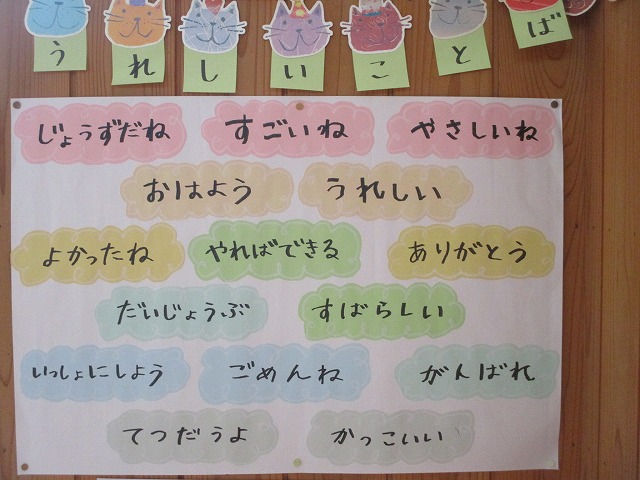 うれしいことば
じょうずだね すごいね やさしいね
おはよう うれしい
よかったね やればできる ありがとう
だいじょうぶ すばらしい
いっしょにしよう ごめんね がんばれ
てつだうよ かっこいい